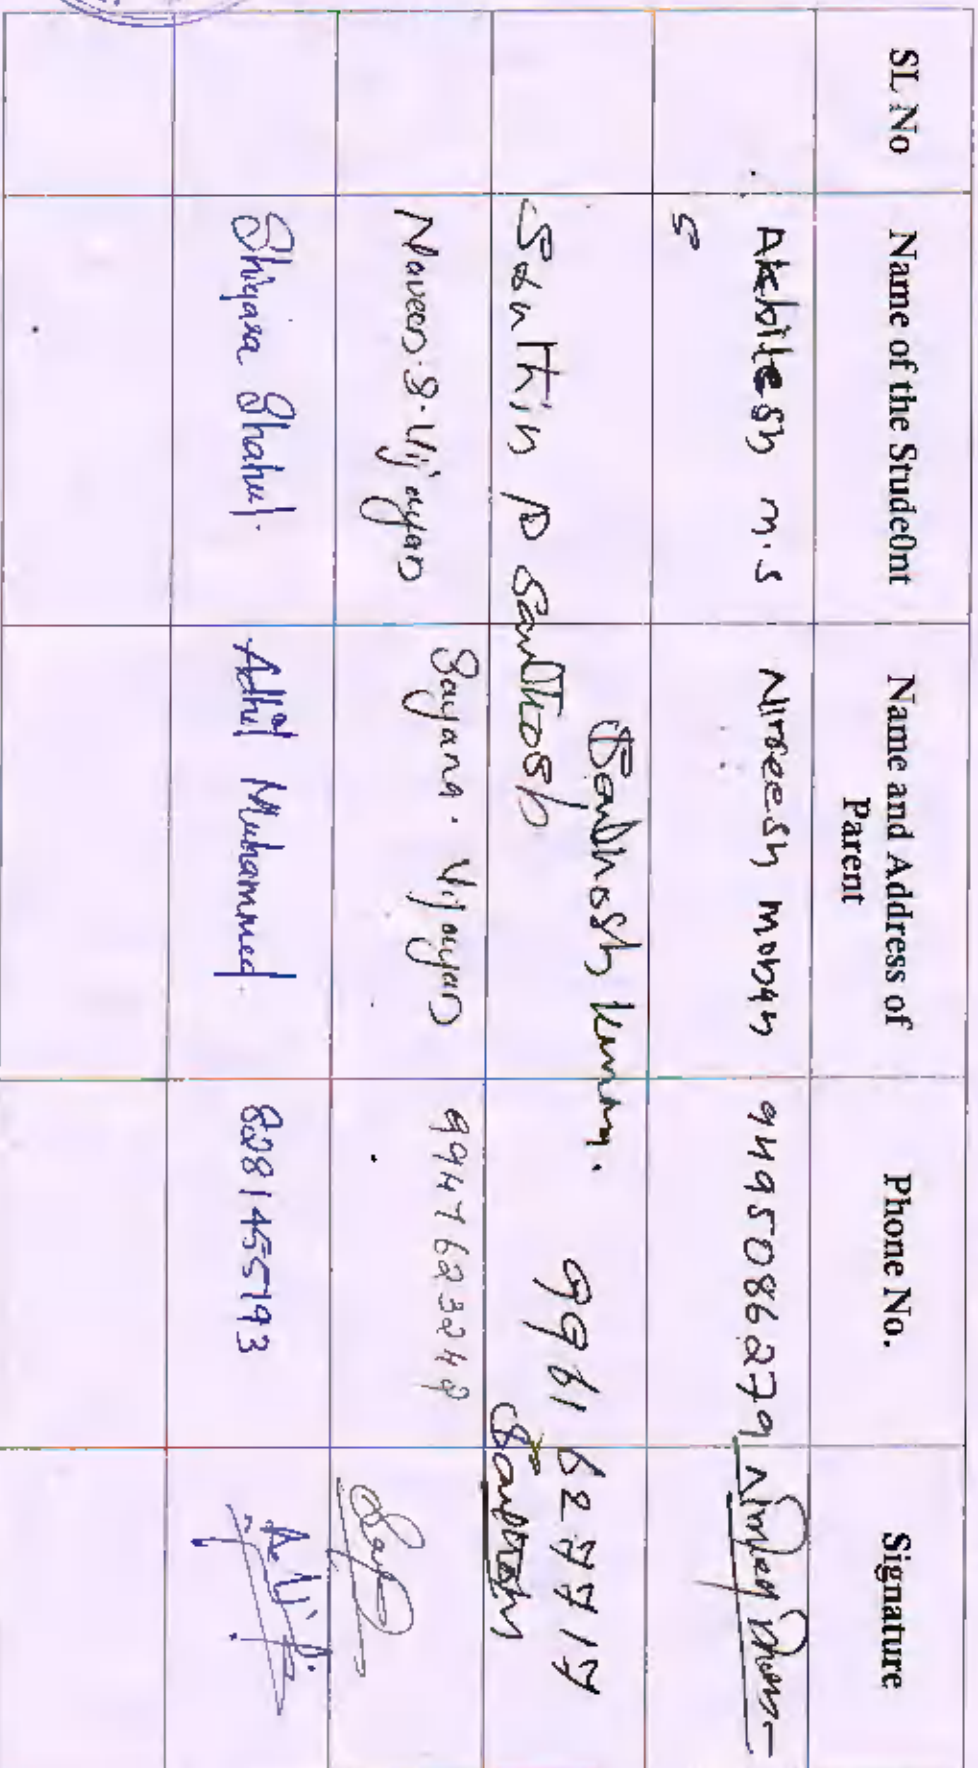 SL No Name of the Stude0nt Name and Address of Parent Phone No. Signature
Akhilesh m.s Nireesh mohan 9495086279
S
Santhosh kumar.
Santhin P Santhosh 9961627717
Santhosh
Naveen.S.Vijayan Sayana. Vijayan 9947623248
Shiyara Shahul. Adhil Muhammed. 8281455793